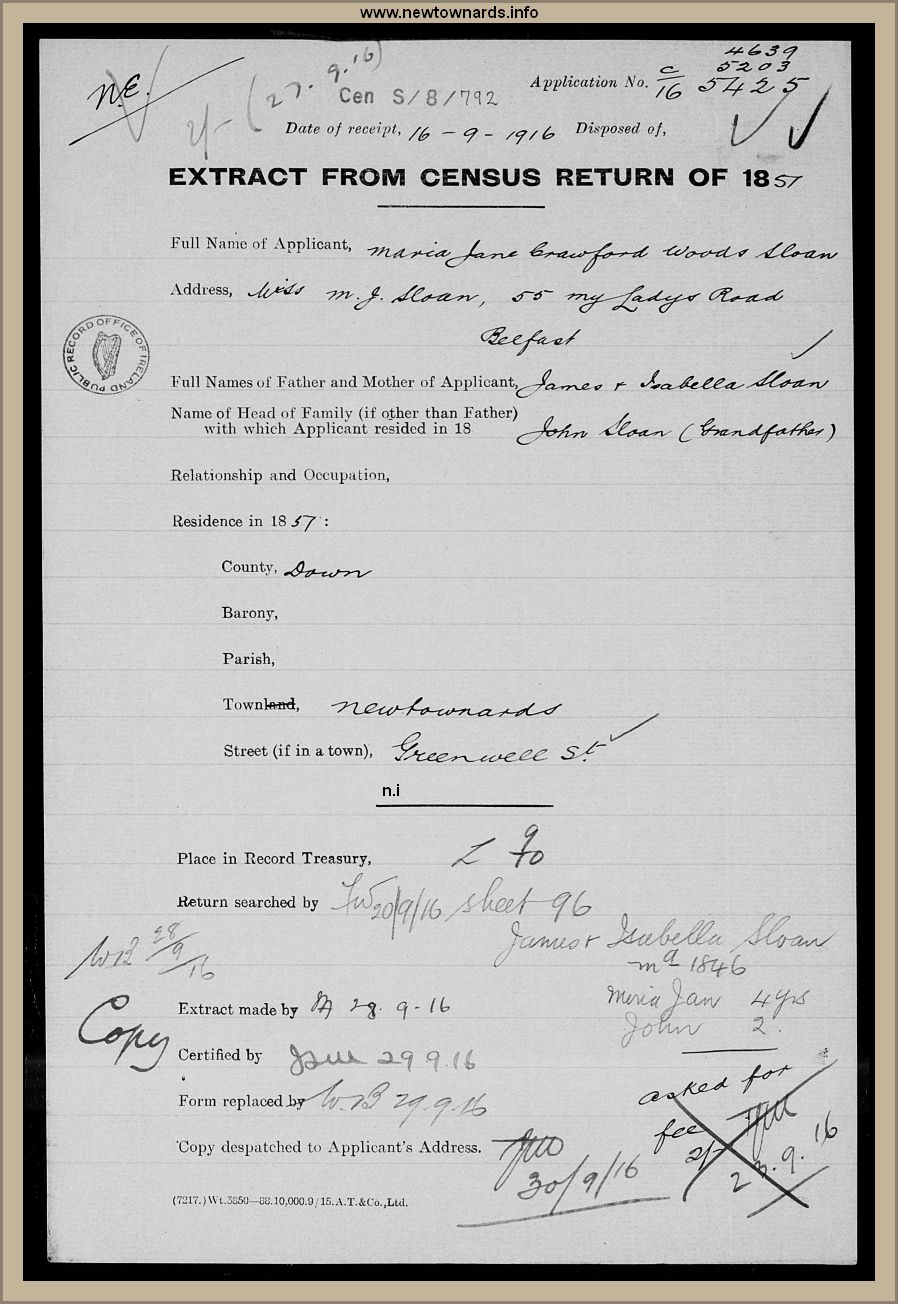 www.newtownards.info
4639
n.E. 2/- (27.9.16) 5203
Cen S/8/792 Application No. c/16 5425
Date of receipt, 16 - 9 - 1916 Disposed of,
EXTRACT FROM CENSUS RETURN OF 1851
Full Name of Applicant, Maria Jane Crawford Woods Sloan
Address, Miss M. J. Sloan, 55 My Ladys Road
Belfast
PUBLIC RECORD OFFICE OF IRELAND
Full Names of Father and Mother of Applicant, James & Isabella Sloan
Name of Head of Family (if other than Father)
with which Applicant resided in 18 John Sloan (Grandfather)
Relationship and Occupation,
Residence in 1851 :
County, Down
Barony,
Parish,
Townland, Newtownards
Street (if in a town), Greenwell St.
n.i
Place in Record Treasury, L 9 70
Return searched by 20/9/16 sheet 96
James & Isabella Sloan
WB 28/9/16 md 1846
Meria Jan 4 yrs
Extract made by 28.9-16
John 2.
Copy
Certified by 29 9.16
asked for
Form replaced by W.B 29.9.16
fee 2/-
Copy despatched to Applicant's Address. 30/9/16
23.9.16
(7217.) Wt.3850—88.10,000.9/15.A.T.&Co.,Ltd.